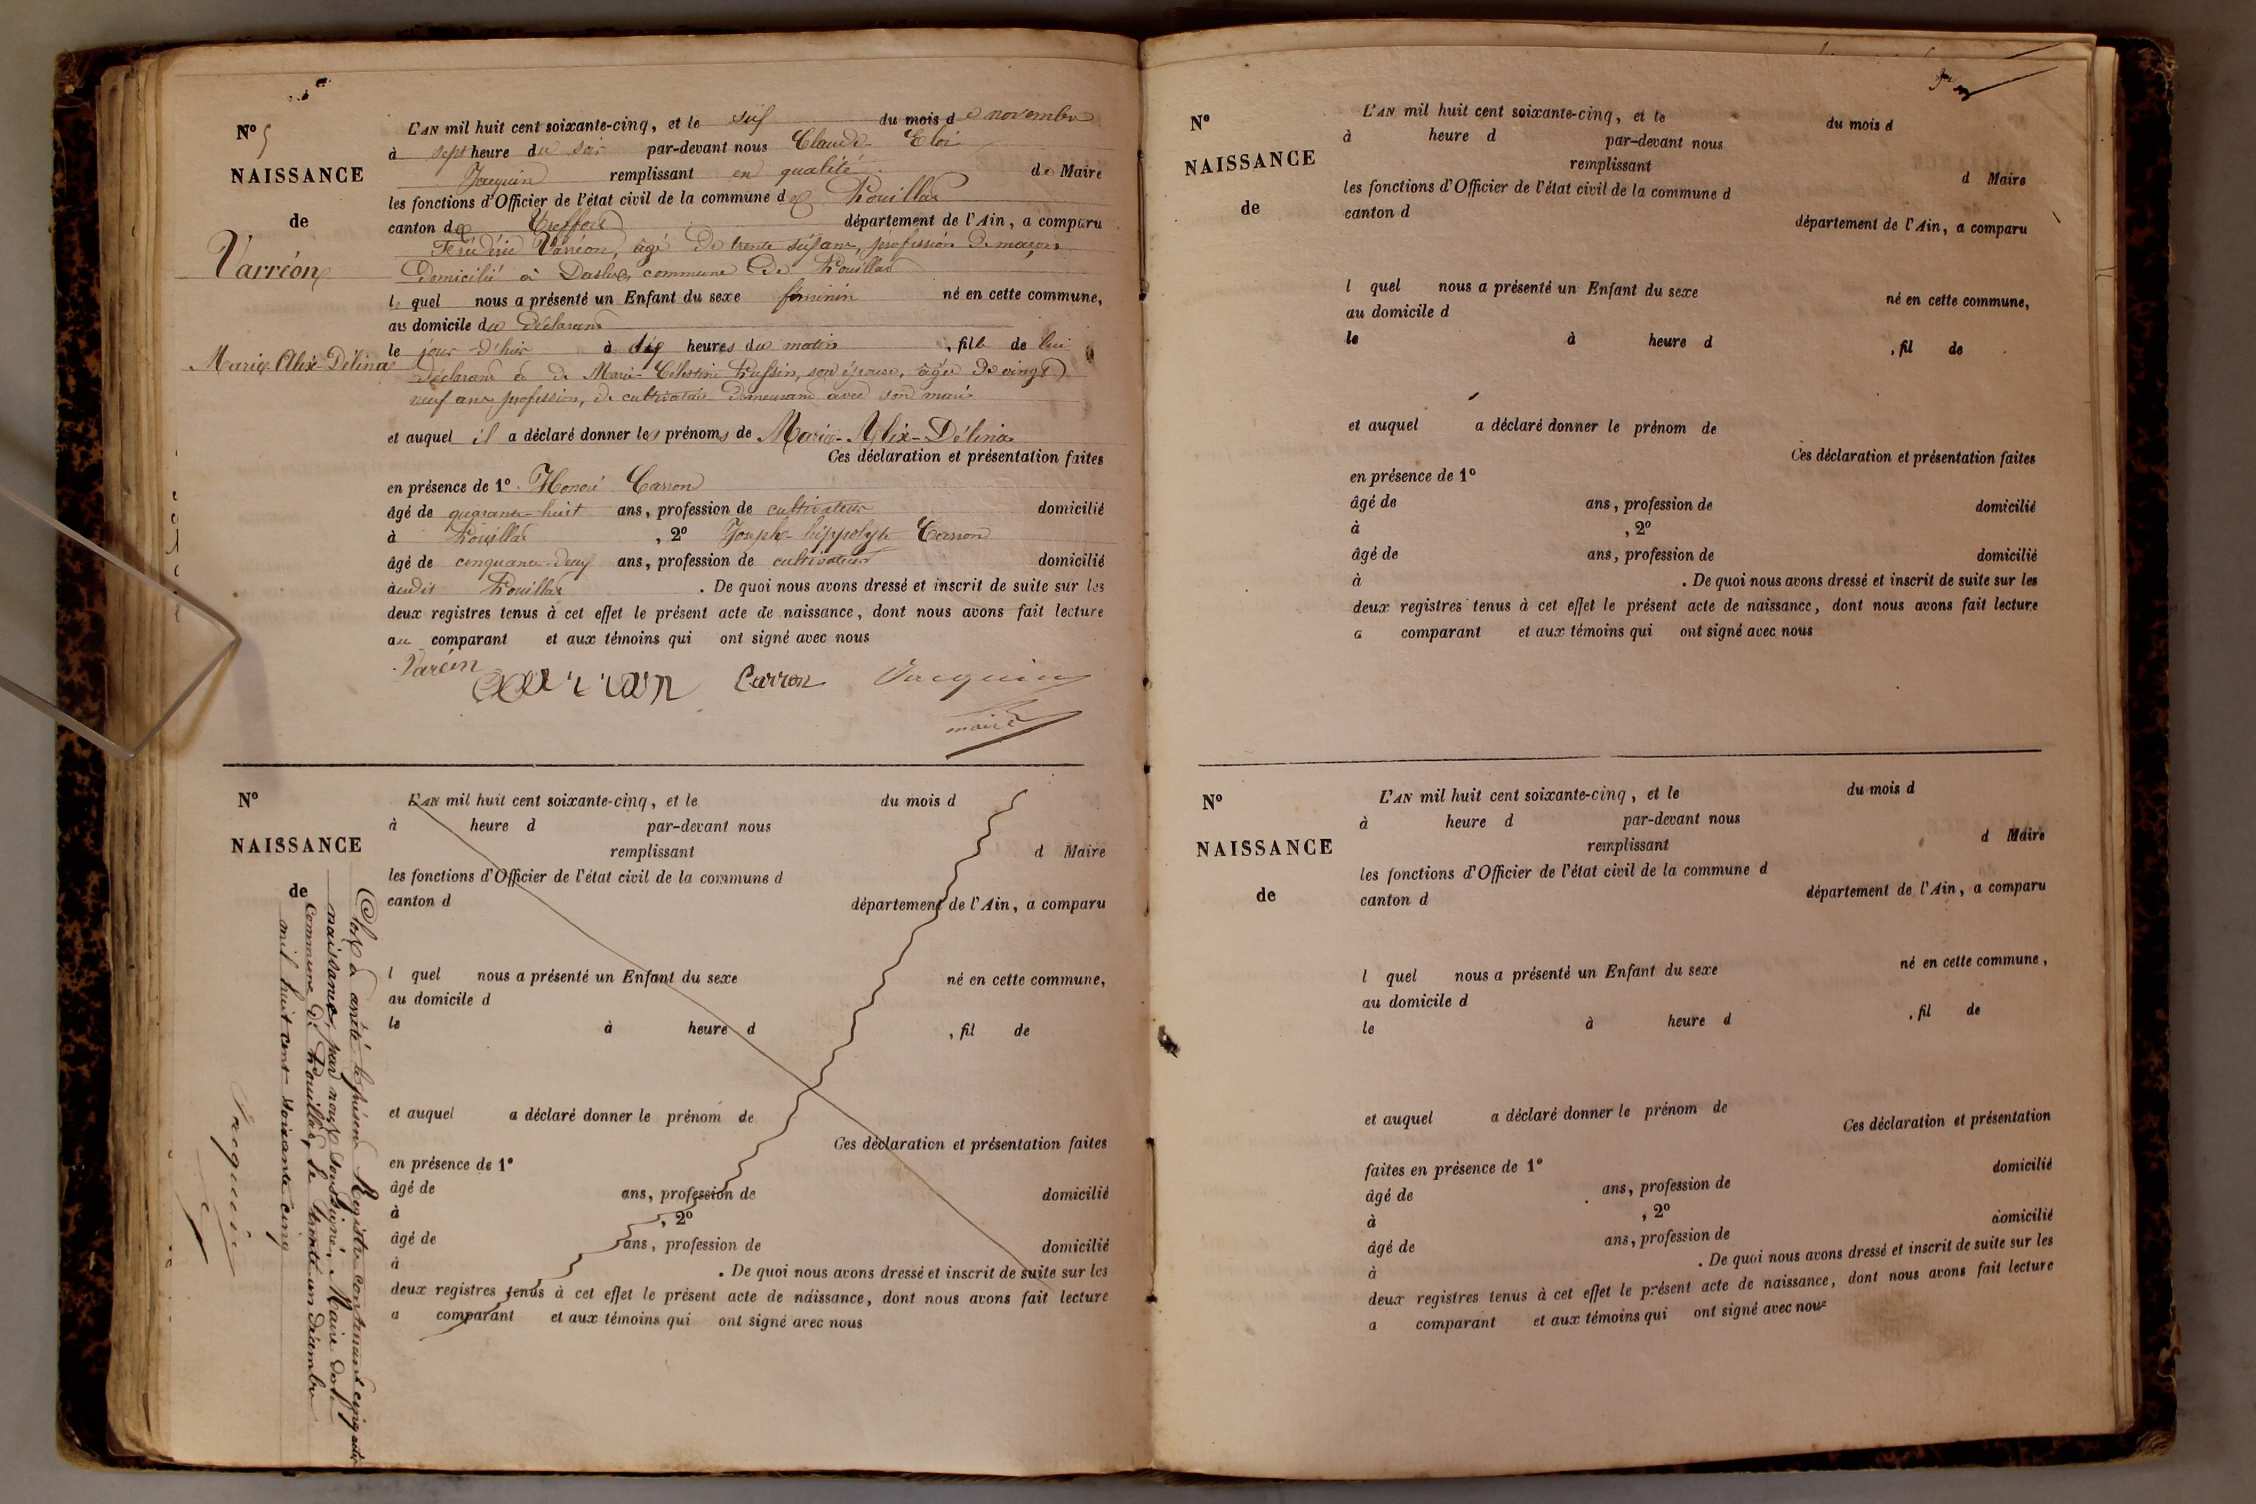 Nº 5
NAISSANCE
de
Varréon
Marie-Alix-Délina
L'AN mil huit cent soixante-cinq, et le six du mois de novembre
à sept heure du soir par-devant nous Claude Eloi
Jacquin remplissant en qualité de Maire
les fonctions d'Officier de l'état civil de la commune de Pouillat
canton de Treffort département de l'Ain, a comparu
Frédéric Varréon, âgé de trente six ans, profession de maçon
domicilié à commune de Pouillat
le quel nous a présenté un Enfant du sexe féminin né en cette commune,
au domicile du déclarant
le jour d'hier à dix heures du matin, fille de lui
déclarant et de Marie-Célestine son épouse, âgée de vingt
neuf ans profession, de cultivatrice demeurant avec son mari
et auquel il a déclaré donner les prénoms de Marie-Alix-Délina
Ces déclaration et présentation faites
en présence de 1º Honoré Carron
âgé de quarante-huit ans, profession de cultivateur domicilié
à Pouillat, 2º Joseph hippolyte Carron
âgé de cinquante-deux ans, profession de cultivateur domicilié
audit Pouillat. De quoi nous avons dressé et inscrit de suite sur les
deux registres tenus à cet effet le présent acte de naissance, dont nous avons fait lecture
au comparant et aux témoins qui ont signé avec nous
Carron Jacquin
maire
Nº
NAISSANCE
de
L'AN mil huit cent soixante-cinq, et le du mois d
à heure d par-devant nous
remplissant d Maire
les fonctions d'Officier de l'état civil de la commune d
canton d département de l'Ain, a comparu
l quel nous a présenté un Enfant du sexe né en cette commune,
au domicile d
le à heure d , fil de
et auquel a déclaré donner le prénom de
Ces déclaration et présentation faites
en présence de 1º
âgé de ans, profession de domicilié
à , 2º
âgé de ans, profession de domicilié
à . De quoi nous avons dressé et inscrit de suite sur les
deux registres tenus à cet effet le présent acte de naissance, dont nous avons fait lecture
a comparant et aux témoins qui ont signé avec nous
Clos et arrêté le présent Registre contenant cinq actes
naissance, par nous soussigné, Maire de la
commune de Pouillat, le trente-un décembre
mil huit cent soixante cinq
Jacquin
Nº
NAISSANCE
de
L'AN mil huit cent soixante-cinq, et le du mois d
à heure d par-devant nous
remplissant d Maire
les fonctions d'Officier de l'état civil de la commune d
canton d département de l'Ain, a comparu
l quel nous a présenté un Enfant du sexe né en cette commune,
au domicile d
le à heure d , fil de
et auquel a déclaré donner le prénom de
Ces déclaration et présentation faites
en présence de 1º
âgé de ans, profession de domicilié
à , 2º
âgé de ans, profession de domicilié
à . De quoi nous avons dressé et inscrit de suite sur les
deux registres tenus à cet effet le présent acte de naissance, dont nous avons fait lecture
a comparant et aux témoins qui ont signé avec nous
Nº
NAISSANCE
de
L'AN mil huit cent soixante-cinq, et le du mois d
à heure d par-devant nous
remplissant d Maire
les fonctions d'Officier de l'état civil de la commune d
canton d département de l'Ain, a comparu
l quel nous a présenté un Enfant du sexe né en cette commune,
au domicile d
le à heure d , fil de
et auquel a déclaré donner le prénom de
Ces déclaration et présentation
faites en présence de 1º domicilié
âgé de ans, profession de
à , 2º domicilié
âgé de ans, profession de
à . De quoi nous avons dressé et inscrit de suite sur les
deux registres tenus à cet effet le présent acte de naissance, dont nous avons fait lecture
a comparant et aux témoins qui ont signé avec nous